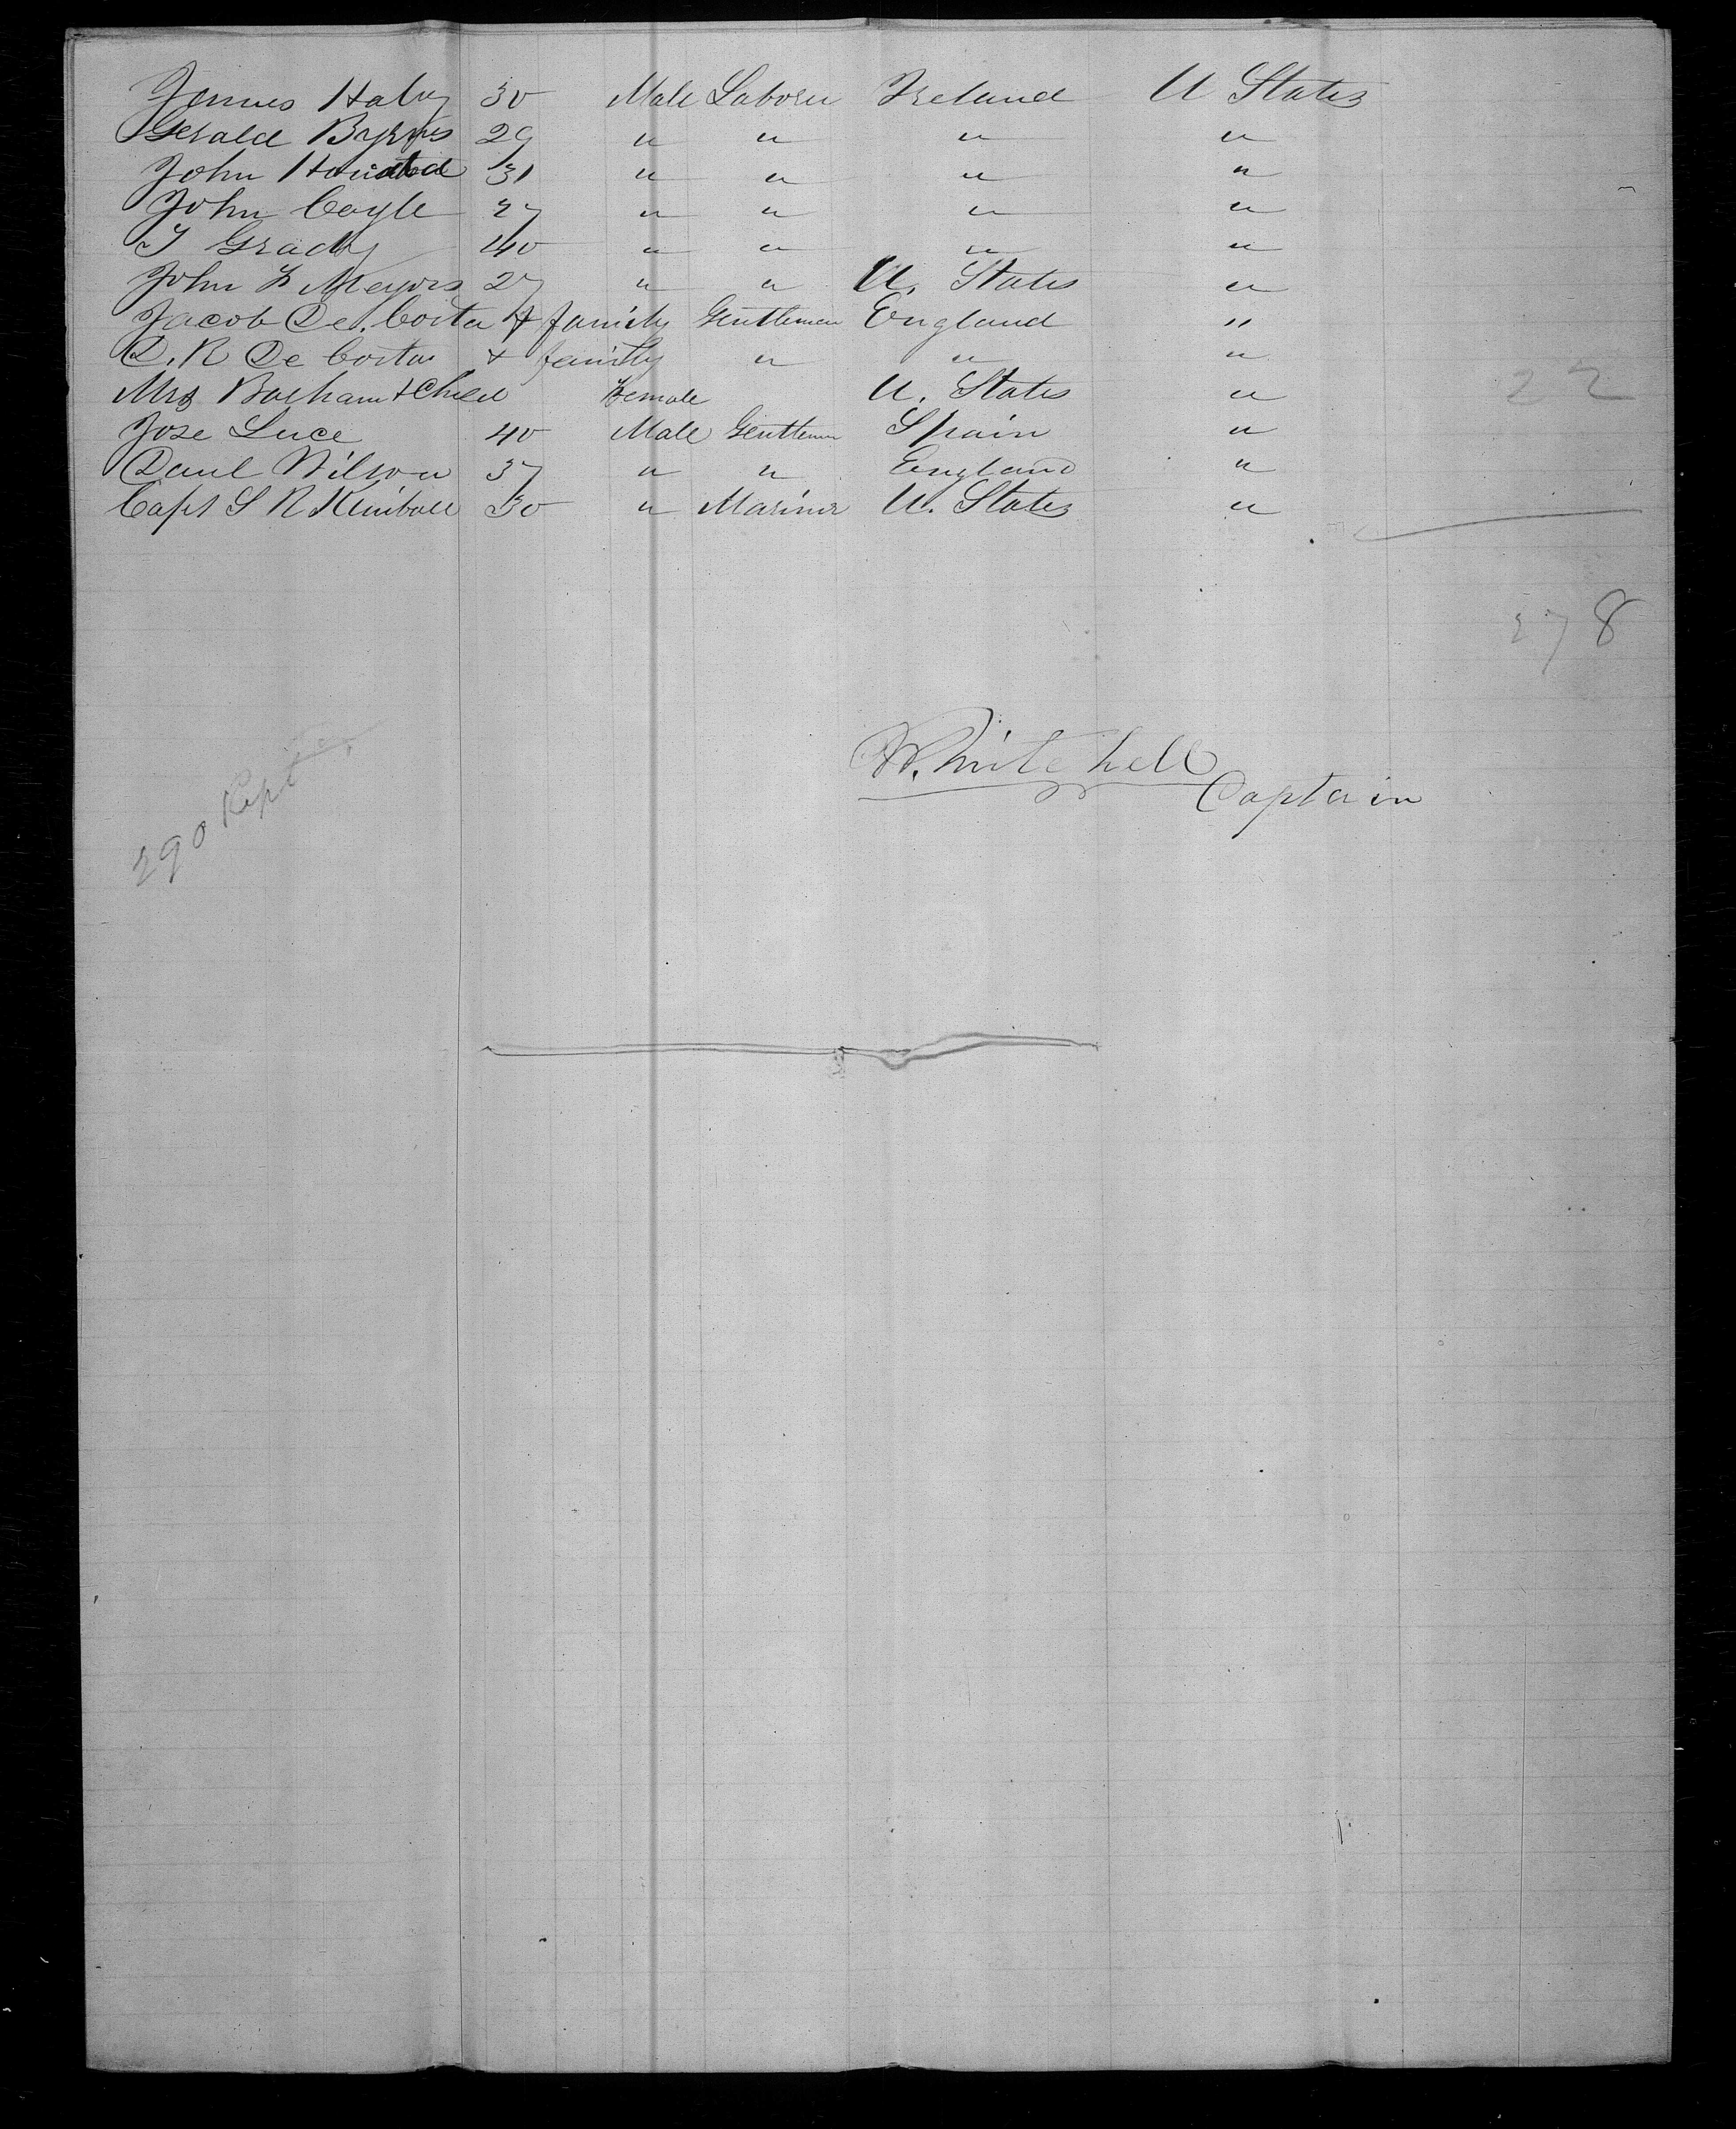 James Haley 30 Male Laborer Ireland U States
Gerald Byrnes 29 " " " "
John 31 " " " "
John Coyle 27 " " " "
T Grady 40 " " " "
John F Meyers 27 " " U. States "
Jacob De. Costa & family Gentleman England "
D. R De Costa & family " " "
Mrs & Child Female U. States "
Jose Luce 40 Male Gentleman Spain "
Danl Wilson 37 " " England "
Capt S R Kimball 30 " Mariner U. States "
22
278
W. Mitchell
Captain
290